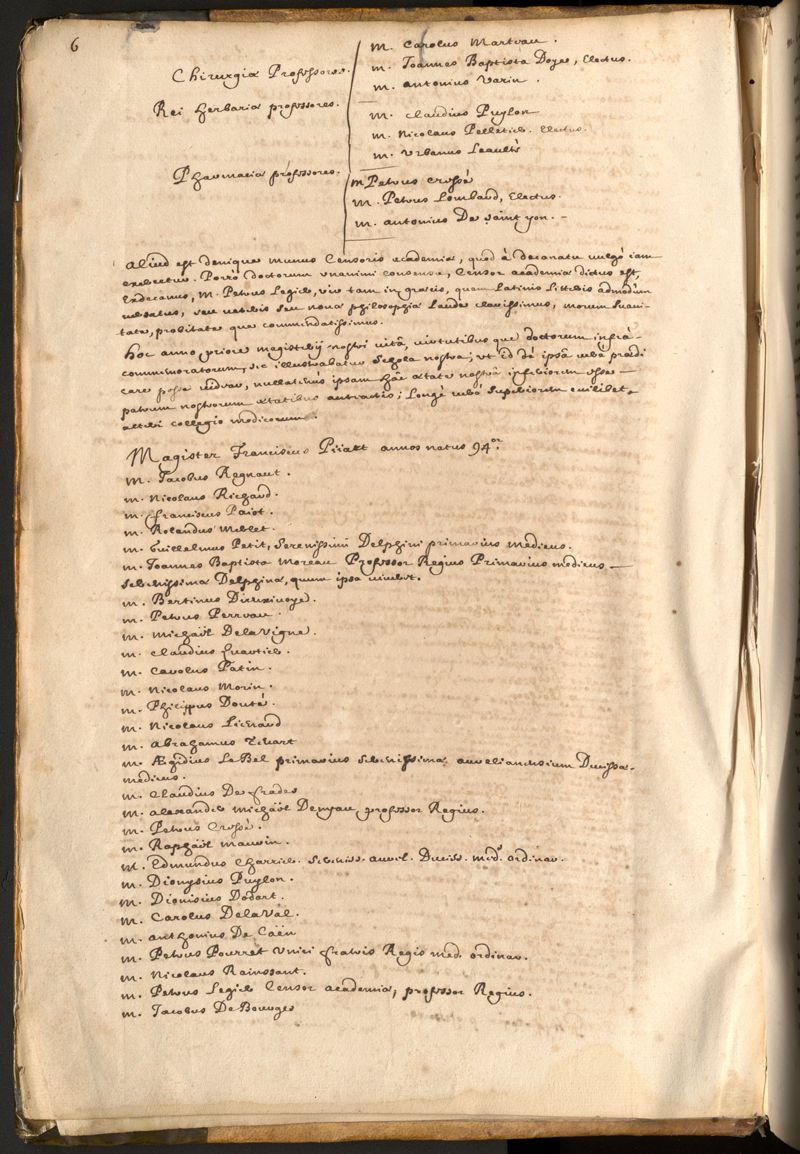 6
Chirurgiæ Professores.
m. Carolus Marteau.
m. Joannes Baptista Doye, Electus.
m. antonius Varin.
Rei herbariæ professores.
m. Claudius Puylon
m. Nicolaus Pelletier. Electus.
m. Urbanus Leaultè
Pharmaciæ professores.
m Petrus Cressé
m. Petrus Lombard, Electus.
m. antonius De Saint yon. –
aliud est denique munus Censoris academiæ, quod à decanatu vulgò iam
exercetur. Porrò doctorum unanimi consensu, Censor academiæ dictus est,
Exdecanus, M. Petrus Legier, vir tam in græcis, quam Latinis Litteris admodùm
versatus, seu veteris seu novæ philosophiæ Laude clarissimus, morum suavi-
tate, probitate que commendatissimus.
hoc anno priore magisterij nostri vitâ, virtutibus que doctorum infrà-
commemoratorum, sic illustrabatur Schola nostra; ut id de ipsâ verè prædi
care posse videar, nullatenùs ipsam hâc ætate nostrâ inferiorem esse –
patrum nostrorum ætatibus anteactis; Longè verò superiorem cuilibet
alteri collegio medicorum.
Magister Franciscus Pijart annos natus 94or.
m. Jacobus Regnaut.
m. Nicolaus Richard.
m. franciscus Paiot.
m. Rolandus Merlet.
m. Guillelmus Petit, Serenissimi Delphini primarius medicus.
m. Joannes Baptista Moreau Professor Regius Primarius medicus –
serenissimæ Delphinæ, quum ipsa viveret.
m. Bertinus Dieuxivoye.
m. Petrus Perreau.
m. michaël Delavigne.
m. claudius Quartier.
m. Carolus Patin.
m. Nicolaus Morin.
m. Philippus Douté.
m. Nicolaus Lienard
m. abrahamus Thuart
m. Ægidius LeBel primarius serenissimæ aurelianensium Ducissæ
medicus.
m. Claudius De frades
m. alexander michaël Denyau professor Regius.
m. Petrus Cressé.
m. Raphaël mauvin.
m. Edmundus Charrier. sereniss. aurel. Duciss. med. ordinar.
m. Dionysius Puylon.
m. Dionisius Dodart.
m. Carolus Delaval.
m. anthonius De Caën
m. Petrus Pourret Unici fratris Regis med. ordinar.
m. Nicolaus Rainssant.
m. Petrus Legier Censor academiæ, professor Regius.
m. Jacobus De Bourges